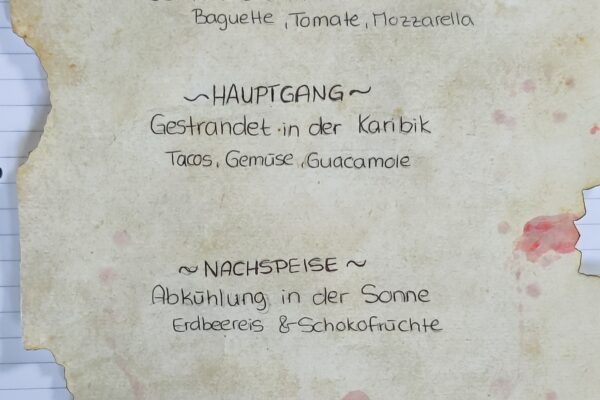 Baguette, Tomate, Mozzarella
~HAUPTGANG~
Gestrandet in der Karibik
Tacos, Gemüse, Guacamole
~NACHSPEISE~
Abkühlung in der Sonne
Erdbeereis & Schokofrüchte